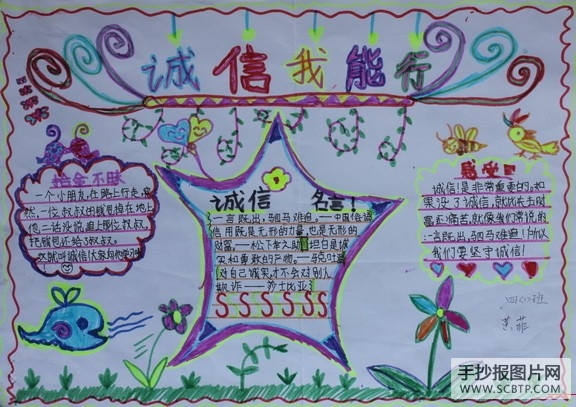 诚信我能行
拾金不昧
一个小朋友,在路上行走,突
然,一位叔叔的钱包掉在地上
他一话没说追上那位叔叔,
把钱包还给了叔叔。
这就叫诚信!大家向他学习!
诚信 名言!
一言既出,驷马难追,——中国俗语
信用既是无形的力量,也是无形的
财富,——松下幸之助 坦白是诚
实和勇敢的产物。——马克吐温
对自己诚实,才不会对别人
欺诈——莎士比亚
SSSSSS
感受
诚信!是非常重要的,如
果没了诚信,就比失去财
富还痛苦,就像我们常说的
一言既出,驷马难追!所以
我们要坚守诚信!
四(2)班
手抄报图片网
WWW.SCBTP.COM